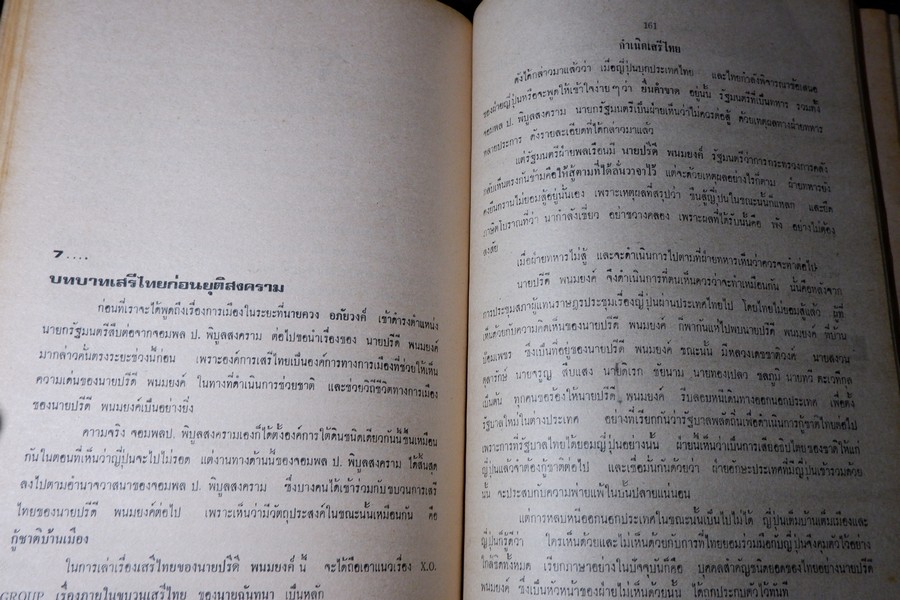 7 ....
บทบาทเสรีไทยก่อนยุติสงคราม
ก่อนที่เราจะได้พูดถึงเรื่องการเมืองในระยะที่นายควง อภัยวงค์ เข้าดำรงตำแหน่ง
นายกรัฐมนตรีสืบต่อจากจอมพล ป. พิบูลสงคราม ต่อไปขอนำเรื่องของ นายปรีดี พนมยงค์
มากล่าวคั่นตรงระยะช่วงนี้ก่อน เพราะองค์การเสรีไทยเป็นองค์การทางการเมืองที่ช่วยให้เห็น
ความเด่นของนายปรีดี พนมยงค์ ในทางที่ดำเนินการช่วยชาติ และช่วยวิถีชีวิตทางการเมือง
ของนายปรีดี พนมยงค์เป็นอย่างยิ่ง
ความจริง จอมพลป. พิบูลสงครามเองก็ได้ตั้งองค์การใต้ดินชนิดเดียวกันนี้ขึ้นเหมือน
กันในตอนที่เห็นว่าญี่ปุ่นจะไปไม่รอด แต่งานทางด้านนี้ของจอมพล ป. พิบูลสงคราม ได้สิ้นสุด
ลงไปตามอำนาจวาสนาของจอมพล ป. พิบูลสงคราม ซึ่งบางคนได้เข้าร่วมกับขบวนการเสรี
ไทยของนายปรีดี พนมยงค์ต่อไป เพราะเห็นว่ามีวัตถุประสงค์ในขณะนั้นเหมือนกัน คือ
กู้ชาติบ้านเมือง
ในการเล่าเรื่องเสรีไทยของนายปรีดี พนมยงค์ นี้ จะได้ถือเอาแนวเรื่อง X.O.
GROUP เรื่องภายในขบวนเสรีไทย ของนายฉันทนา เป็นหลัก
161
กำเนิดเสรีไทย
ดังได้กล่าวมาแล้วว่า เมื่อญี่ปุ่นบุกประเทศไทย และไทยกำลังพิจารณาข้อเสนอ
ของฝ่ายญี่ปุ่นหรือจะพูดให้เข้าใจง่ายๆว่า ยื่นคำขาด อยู่นั้น รัฐมนตรีที่เป็นทหาร รวมทั้ง
จอมพล ป. พิบูลสงคราม นายกรัฐมนตรีเป็นฝ่ายเห็นว่าไม่ควรต่อสู้ ด้วยเหตุผลทางฝ่ายทหาร
หลายประการ ดังรายละเอียดที่ได้กล่าวมาแล้ว
แต่รัฐมนตรีฝ่ายพลเรือนมี นายปรีดี พนมยงค์ รัฐมนตรีว่าการกระทรวงการคลัง
กลับเห็นตรงกันข้ามคือให้สู้ตามที่ได้ลั่นวาจาไว้ แต่จะด้วยเหตุผลอย่างไรก็ตาม ฝ่ายทหารยัง
คงยืนกรานไม่ยอมสู้อยู่นั่นเอง เพราะเหตุผลที่สรุปว่า ขืนสู้ญี่ปุ่นในขณะนั้นก็แหลก และยึด
ภาษิตโบราณที่ว่า น้ำกำลังเชี่ยว อย่าขวางคลอง เพราะผลที่ได้รับนั้นคือ พัง อย่างไม่ต้อง
สงสัย
เมื่อฝ่ายทหารไม่สู้ และจะดำเนินการไปตามที่ฝ่ายทหารเห็นว่าควรจะทำต่อไป
นายปรีดี พนมยงค์ จึงดำเนินการที่ตนเห็นควรว่าจะทำเหมือนกัน นั่นคือหลังจาก
การประชุมสภาผู้แทนราษฎรประชุมเรื่องญี่ปุ่นผ่านประเทศไทยไป โดยไทยไม่ยอมสู้แล้ว ผู้ที่
เห็นด้วยกับความคิดเห็นของนายปรีดี พนมยงค์ ก็พากันแห่ไปพบนายปรีดี พนมยงค์ ที่บ้าน
ป้อมเพชร ซึ่งเป็นที่อยู่ของนายปรีดี พนมยงค์ ขณะนั้น มีหลวงเดชชาติวงค์ นายสงวน
ตุลารักษ์ นายจรูญ สืบแสง นายดิเรก ชัยนาม นายทองเปลว ชลภูมิ นายทวี ตะเวทิกุล
เป็นต้น ทุกคนขอร้องให้นายปรีดี พนมยงค์ รีบลอบหนีเดินทางออกนอกประเทศ เพื่อตั้ง
รัฐบาลใหม่ในต่างประเทศ อย่างที่เรียกกันว่ารัฐบาลพลัดถิ่นเพื่อดำเนินการกู้ชาติไทยต่อไป
เพราะการที่รัฐบาลไทยได้ยอมญี่ปุ่นอย่างนั้น ฝ่ายนี้เห็นว่าเป็นการเสียอธิปไตยของชาติให้แก่
ญี่ปุ่นแล้วจำต้องกู้ชาติต่อไป และเชื่อมั่นกันด้วยว่า ฝ่ายอักษะประเทศที่มีญี่ปุ่นเข้าร่วมด้วย
นั้น จะประสบกับความพ่ายแพ้ในบั้นปลายแน่นอน
แต่การหลบหนีออกนอกประเทศในขณะนั้นเป็นไปไม่ได้ ญี่ปุ่นเต็มบ้านเต็มเมืองและ
ญี่ปุ่นก็รู้ดีว่า ใครเห็นด้วยและไม่เห็นด้วยกับการที่ไทยยอมร่วมมือกับญี่ปุ่นจึงคุมตัวไว้อย่าง
ใกล้ชิดทั้งหมด เรียกภาษาอย่างในปัจจุบันก็คือ บุคคลสำคัญชั้นยอดของไทยอย่างนายปรีดี
พนมยงค์ ซึ่งเป็นหัวหน้าของฝ่ายไม่เห็นด้วยนั้น ได้ถูกประกบตัวไว้ทันที